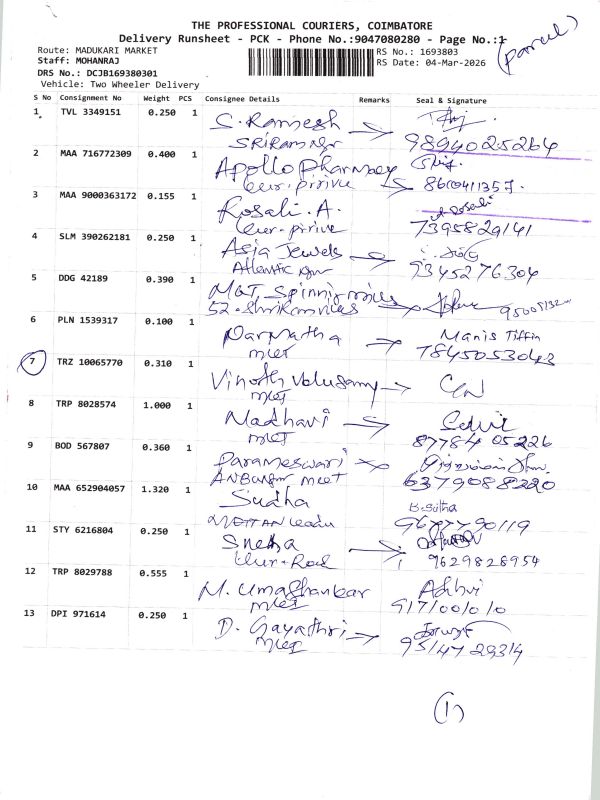 THE PROFESSIONAL COURIERS, COIMBATORE
Delivery Runsheet - PCK - Phone No.:9047080280 - Page No.:1
(parcel)
Route: MADUKARI MARKET
RS No.: 1693803
Staff: MOHANRAJ
RS Date: 04-Mar-2026
DRS No.: DCJB169380301
Vehicle: Two Wheeler Delivery
S No Consignment No Weight PCS Consignee Details Remarks Seal & Signature
1 TVL 3349151 0.250 1 S. Ramesh
SRiRam Ngr 9894025264
2 MAA 716772309 0.400 1 Apollo Pharmacy
Kur. pirivu
3 MAA 9000363172 0.155 1 Rosali. A.
Kur. pirivu 7395829141
4 SLM 390262181 0.250 1 Asia Jewels
Atlantic 9345276304
5 DDG 42189 0.390 1 M&T Spinning mills
52. Shriram
6 PLN 1539317 0.100 1 Manis Tiffin
MCT 7845053043
7 TRZ 10065770 0.310 1 Vinoth Velusamy
MCT
8 TRP 8028574 1.000 1 Madhavi Selvi
MCT 87784 05226
9 BOD 567807 0.360 1 Parameswari
MCT 6379088220
10 MAA 652904057 1.320 1 Sudha B. Sutha
11 STY 6216804 0.250 1 Sneha
Kur. Road 9629828954
12 TRP 8029788 0.555 1 M. Umashankar
MCT
13 DPI 971614 0.250 1 D. Gayathri
MCT 95147 29314
(1)